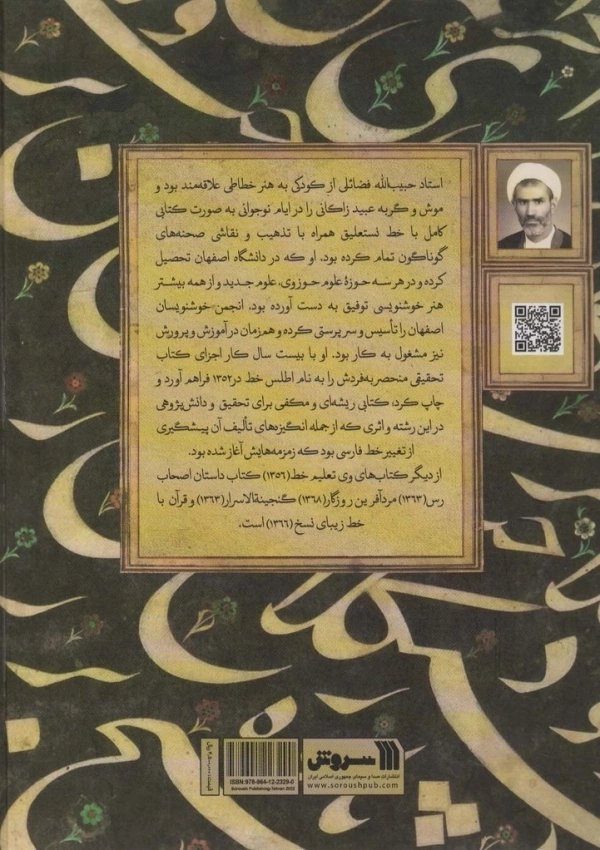 استاد حبیب‌الله فضائلی از کودکی به هنر خطاطی علاقه‌مند بود و
موش و گربه عبید زاکانی را در ایام نوجوانی به صورت کتابی
کامل با خط نستعلیق همراه با تذهیب و نقاشی صحنه‌های
گوناگون تمام کرده بود. او که در دانشگاه اصفهان تحصیل
کرده و در هر سه حوزهٔ علوم حوزوی، علوم جدید و از همه بیشتر
هنر خوشنویسی توفیق به دست آورده بود. انجمن خوشنویسان
اصفهان را تأسیس و سرپرستی کرده و همزمان در آموزش و پرورش
نیز مشغول به کار بود. او با بیست سال کار اجزای کتاب
تحقیقی منحصربه‌فردش را به نام اطلس خط در ۱۳۵۲ فراهم آورد و
چاپ کرد؛ کتابی ریشه‌ای و مکفی برای تحقیق و دانش‌پژوهی
در این رشته و اثری که از جمله انگیزه‌های تألیف آن پیشگیری
از تغییر خط فارسی بود که زمزمه‌هایش آغاز شده بود.
از دیگر کتاب‌های وی تعلیم خط(۱۳۵۶) کتاب داستان اصحاب
رس(۱۳۶۳) مردآفرین روزگار(۱۳۶۸) گنجینةالاسرار(۱۳۶۳) و قرآن با
خط زیبای نسخ (۱۳۶۶) است.
سروش
انتشارات صدا و سیمای جمهوری اسلامی ایران
www.soroushpub.com
ISBN:978-964-12-2329-0
Soroush Publishing/Tehran 2022